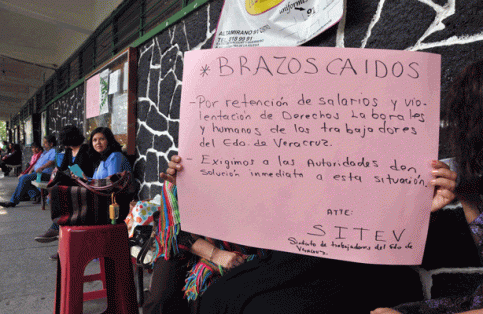 informar
ALTAMIRANO 51
* BRAZOS CAIDOS
- Por retención de salarios y vio-
lentación de Derechos Laborales
y humanos de los trabajadores
del Edo. de Veracruz.
- Exigimos a las Autoridades den
solución inmediata a esta situación.
ATTE:
SITEV
Sindicato de trabajadores del Edo de
Veracruz